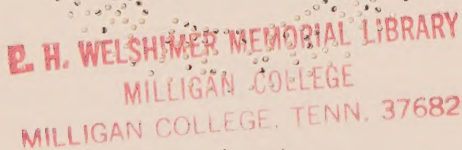 P. H. WELSHIMER MEMORIAL LIBRARY
MILLIGAN COLLEGE
MILLIGAN COLLEGE, TENN. 37682